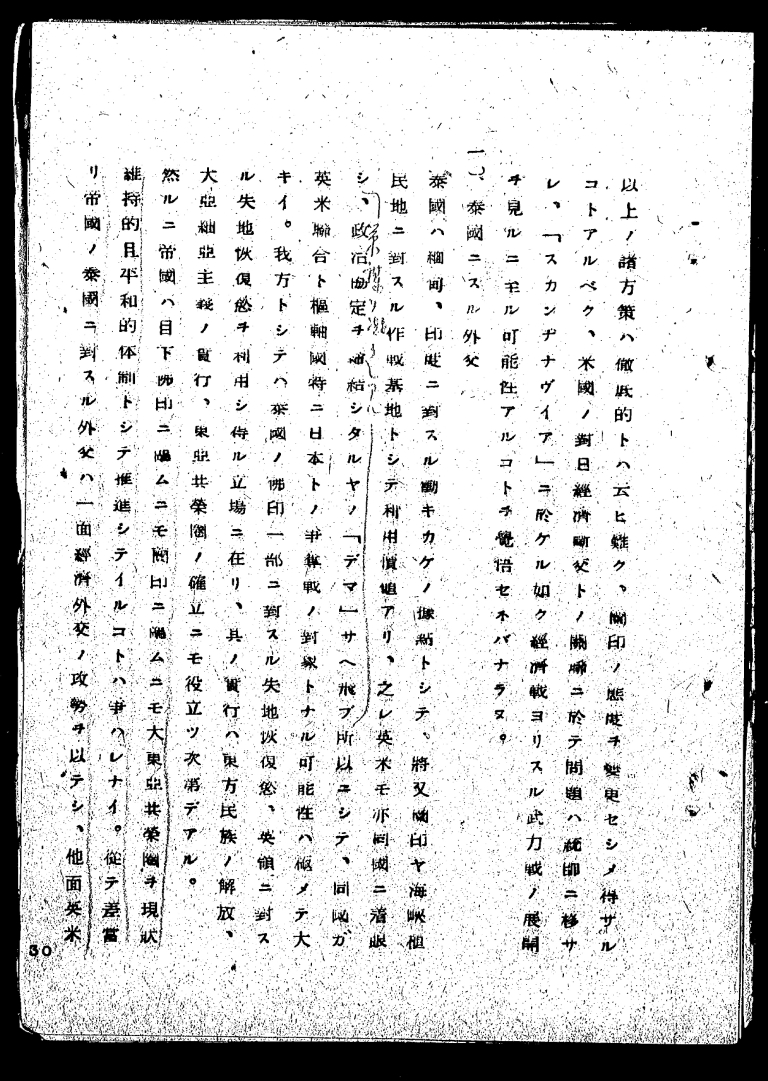 以上ノ諸方策ハ徹底的トハ云ヒ難ク、蘭印ノ態度ヲ變更セシメ得ザル
コトアルベク、米國ノ對日經濟斷交トノ關聯ニ於テ問題ハ統帥ニ移サ
レ、「スカンヂナヴイア」ニ於ケル如ク經濟戰ヨリスル武力戰ノ展開
ヲ見ルニ至ル可能性アルコトヲ覺悟セネバナラヌ。
一、泰國ニスル外交
泰國ハ緬甸、印度ニ對スル動キカケノ據點トシテ、將又蘭印ヤ海峽植
民地ニ對スル作戰基地トシテ利用價値アリ、之レ英米モ亦同國ニ着眼
シ、政治協定ヲ締結シタルヤノ「デマ」サヘ飛ブ所以ニシテ、同國ガ
英米聯合ト樞軸國特ニ日本トノ爭奪戰ノ對象トナル可能性ハ極メテ大
キイ。我方トシテハ泰國ノ佛印一部ニ對スル失地恢復慾、英領ニ對ス
ル失地恢復慾ヲ利用シ得ル立場ニ在リ、其ノ實行ハ東方民族ノ解放、
大亞細亞主義ノ實行、東亞共榮圈ノ確立ニモ役立ツ次第デアル。
然ルニ帝國ハ目下佛印ニ臨ムニモ蘭印ニ臨ムニモ大東亞共榮圈ヲ現狀
維持的且平和的体制トシテ推進シテイルコトハ爭ハレナイ。從テ差當
リ帝國ノ泰國ニ對スル外交ハ一面經濟外交ノ攻勢ヲ以テシ、他面英米
30